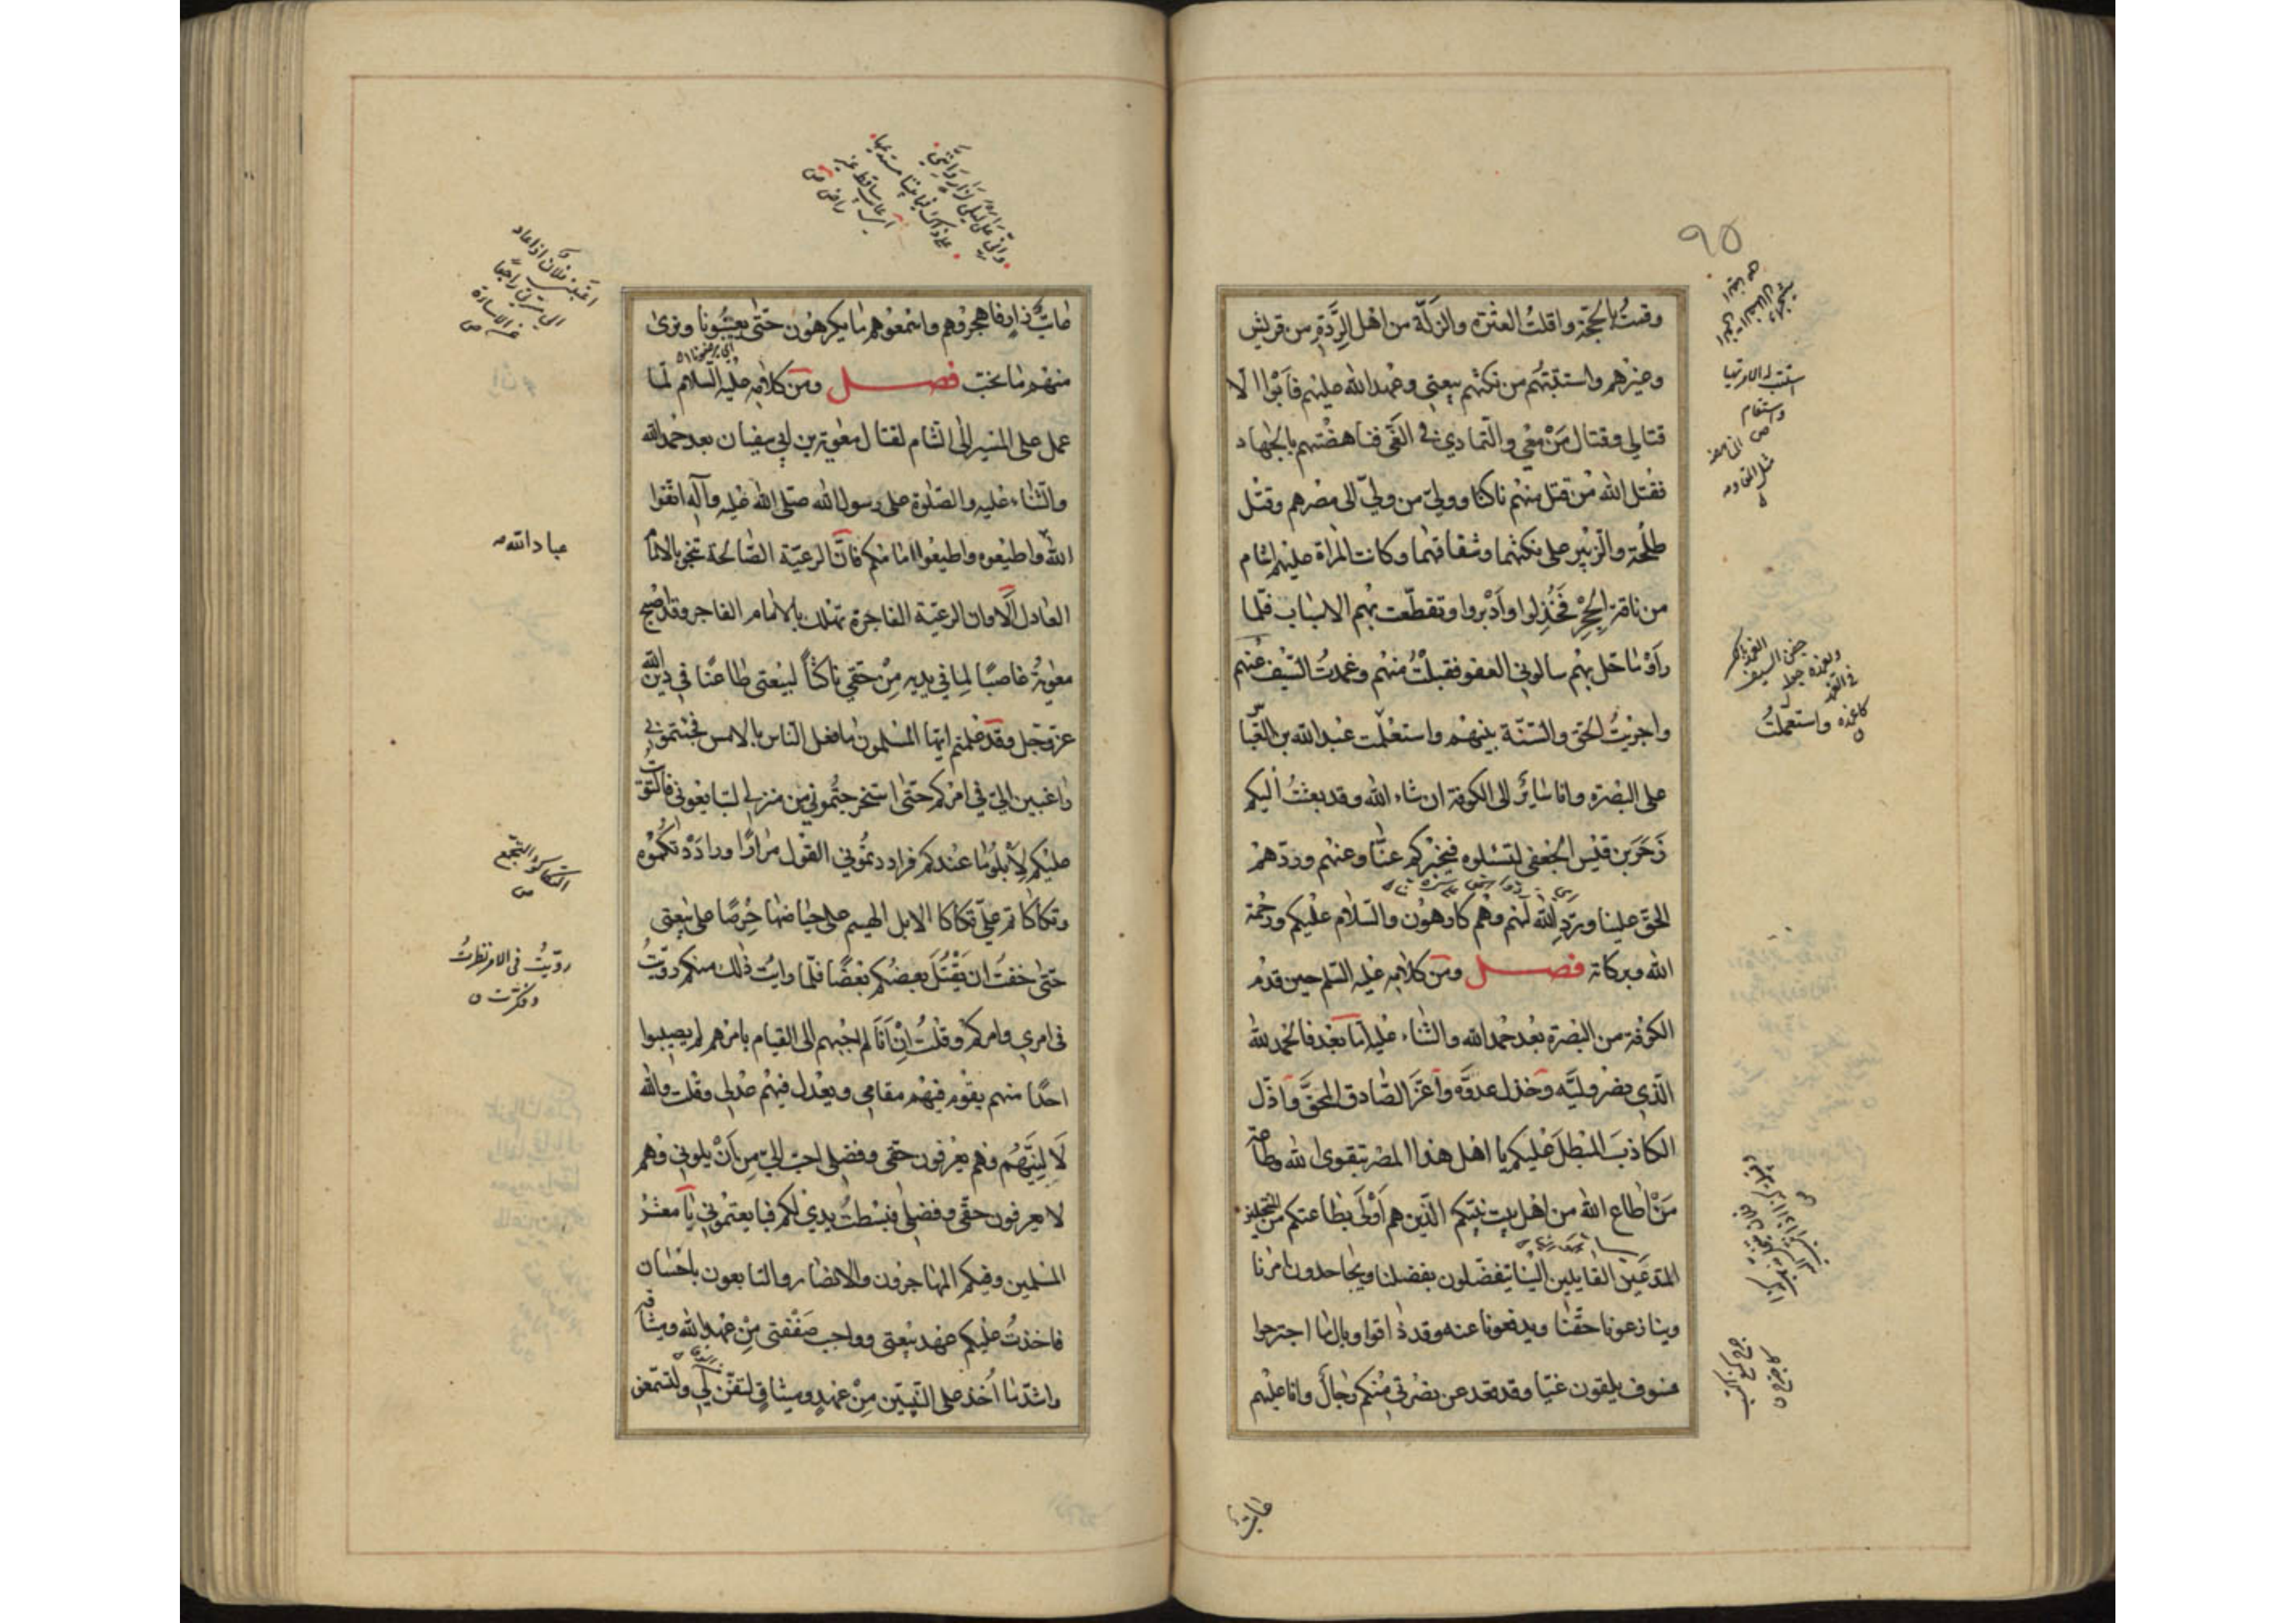 ٩٥
وقمتُ بالحجّة واقلتُ العثرة والزلّة من اهل الرّدّة من قريش
وغيرهم واستتبتُهم من نكثهم بيعتي وعهد الله عليهم فأبَوْا الّا
قتالي وقتال مَنْ معي والتّمادي في الغَيّ فناهضْتهم بالجهاد
فقتل الله مَن قتل منهم ناكثا وولّى من ولّى الى مصرهم وقتل
طلحة والزّبير على نكثهما وشقاقهما وكانت المراة عليهم اشام
من ناقة الحِجْرِ فخُذِلوا وأدْبروا وتقطّعت بهم الاسباب فلمّا
رأوْا ما حل بهم سالوني العفو فقبلْتُ منهم وغمدتُ السّيف عنهم
واجريتُ الحق والسّنّة بينهم واستعْملْت عبد الله بن العبّاس
على البصرة وانا سائرٌ الى الكوفة ان شاء الله وقد بعثتُ اليكم
زَحَرَ بن قيس الجعفي لتسئلوه فيخبركم عنّا وعنهم وردّهم
الحقّ علينا وردّ الله لهم وهم كارهون والسّلام عليكم ورحمة
الله وبركاته فصل ومن كلامه عليه السّلم حين قدم
الكوفة من البصرة بعد حمد الله والثناء عليه امّا بعد فالحمد لله
الّذي نصر وليّه وخذل عدوّه وأعَزّ الصّادق المحقَّ وأذلّ
الكاذبَ المبطلَ عليكم يا اهل هذا المصر بتقوى الله وطاعة
مَنْ اطاع الله من اهل بيت نبيّكم الّذين هم أوْلى بطاعتكم من المنتحلين
المدّعين القايلين الينا يتفضّلون بفضلنا ويجاحدون امرنا
وينازعونا حقّنا ويدفعونا عنه وقد ذاقوا وبال ما اجترحوا
فسوف يلقون غيّا وقد قعد عن نصرتي منكم رجالٌ وانا عليهم
استتب له الامر تهيا
واستقام
ص
واستعملتُ
عاتب
عاتبٌ زارٍ فاهجروهم واسمعوهم ما يكرهون حتّى يعتبونا ونرى
منهم ما نحبّ فصل ومن كلامه عليه السلام لمّا
عمل على المسير الى الشام لقتال معوية بن ابي سفيان بعد حمد الله
والثناء عليه والصّلوة على رسول الله صلى الله عليه وآله اتّقوا
الله واطيعوه واطيعوا امامكم فانّ الرعيّة الصّالحة تنجو بالامام
العادل ألا وان الرعيّة الفاجرة تهلك بالامام الفاجر وقد اصبح
معوية غاصبًا لما في يديه مِنْ حقّي ناكثاً لبيعتي طاعنًا في دين الله
عزّ وجل وقد علمتم ايّها المسلمون ما فعل الناس بالامس فجئتموني
راغبين اليّ في امركم حتّى استخرجتُموني من منزلي لتبايعوني فالتويت
عليكم لأبلُوَ ما عندكم فراددتمُوني القول مرارًا وراددْتكموه
وتكاكاتم عليّ تكاكا الابل الهيم على حياضها حرصًا على بيعتي
حتّى خفت ان يَقْتُلَ بعضكم بعضًا فلمّا رايت ذلك منكم روّيتُ
في امري وامركم وقلت إنْ أنا لم اجبهم الى القيام بامرهم لم يصيبوا
احدًا منهم يقوم فيهم مقامي ويعدل فيهم عدلي وقلت والله
لَألِيَنّهُم وهم يعرفون حقّي وفضلي احبّ اليّ من أنْ يلوني وهم
لا يعرفون حقّي وفضلي فبسطتُ يدي لكم فبايعتموني يا معشر
المسلمين وفيكم المهاجرون والانصار والتابعون باحسان
فاخذتُ عليكم عهد بيعتي وواجب صفقتي مِنْ عهد الله وميثاقه
واشدّ ما أُخذ على النّبيّين مِنْ عهدٍ وميثاقٍ لتفُنّ لي ولتسمعن
عباد الله
التكاكؤ التجمع
ص
روّيتُ في الامر نظرتُ
وفكّرت